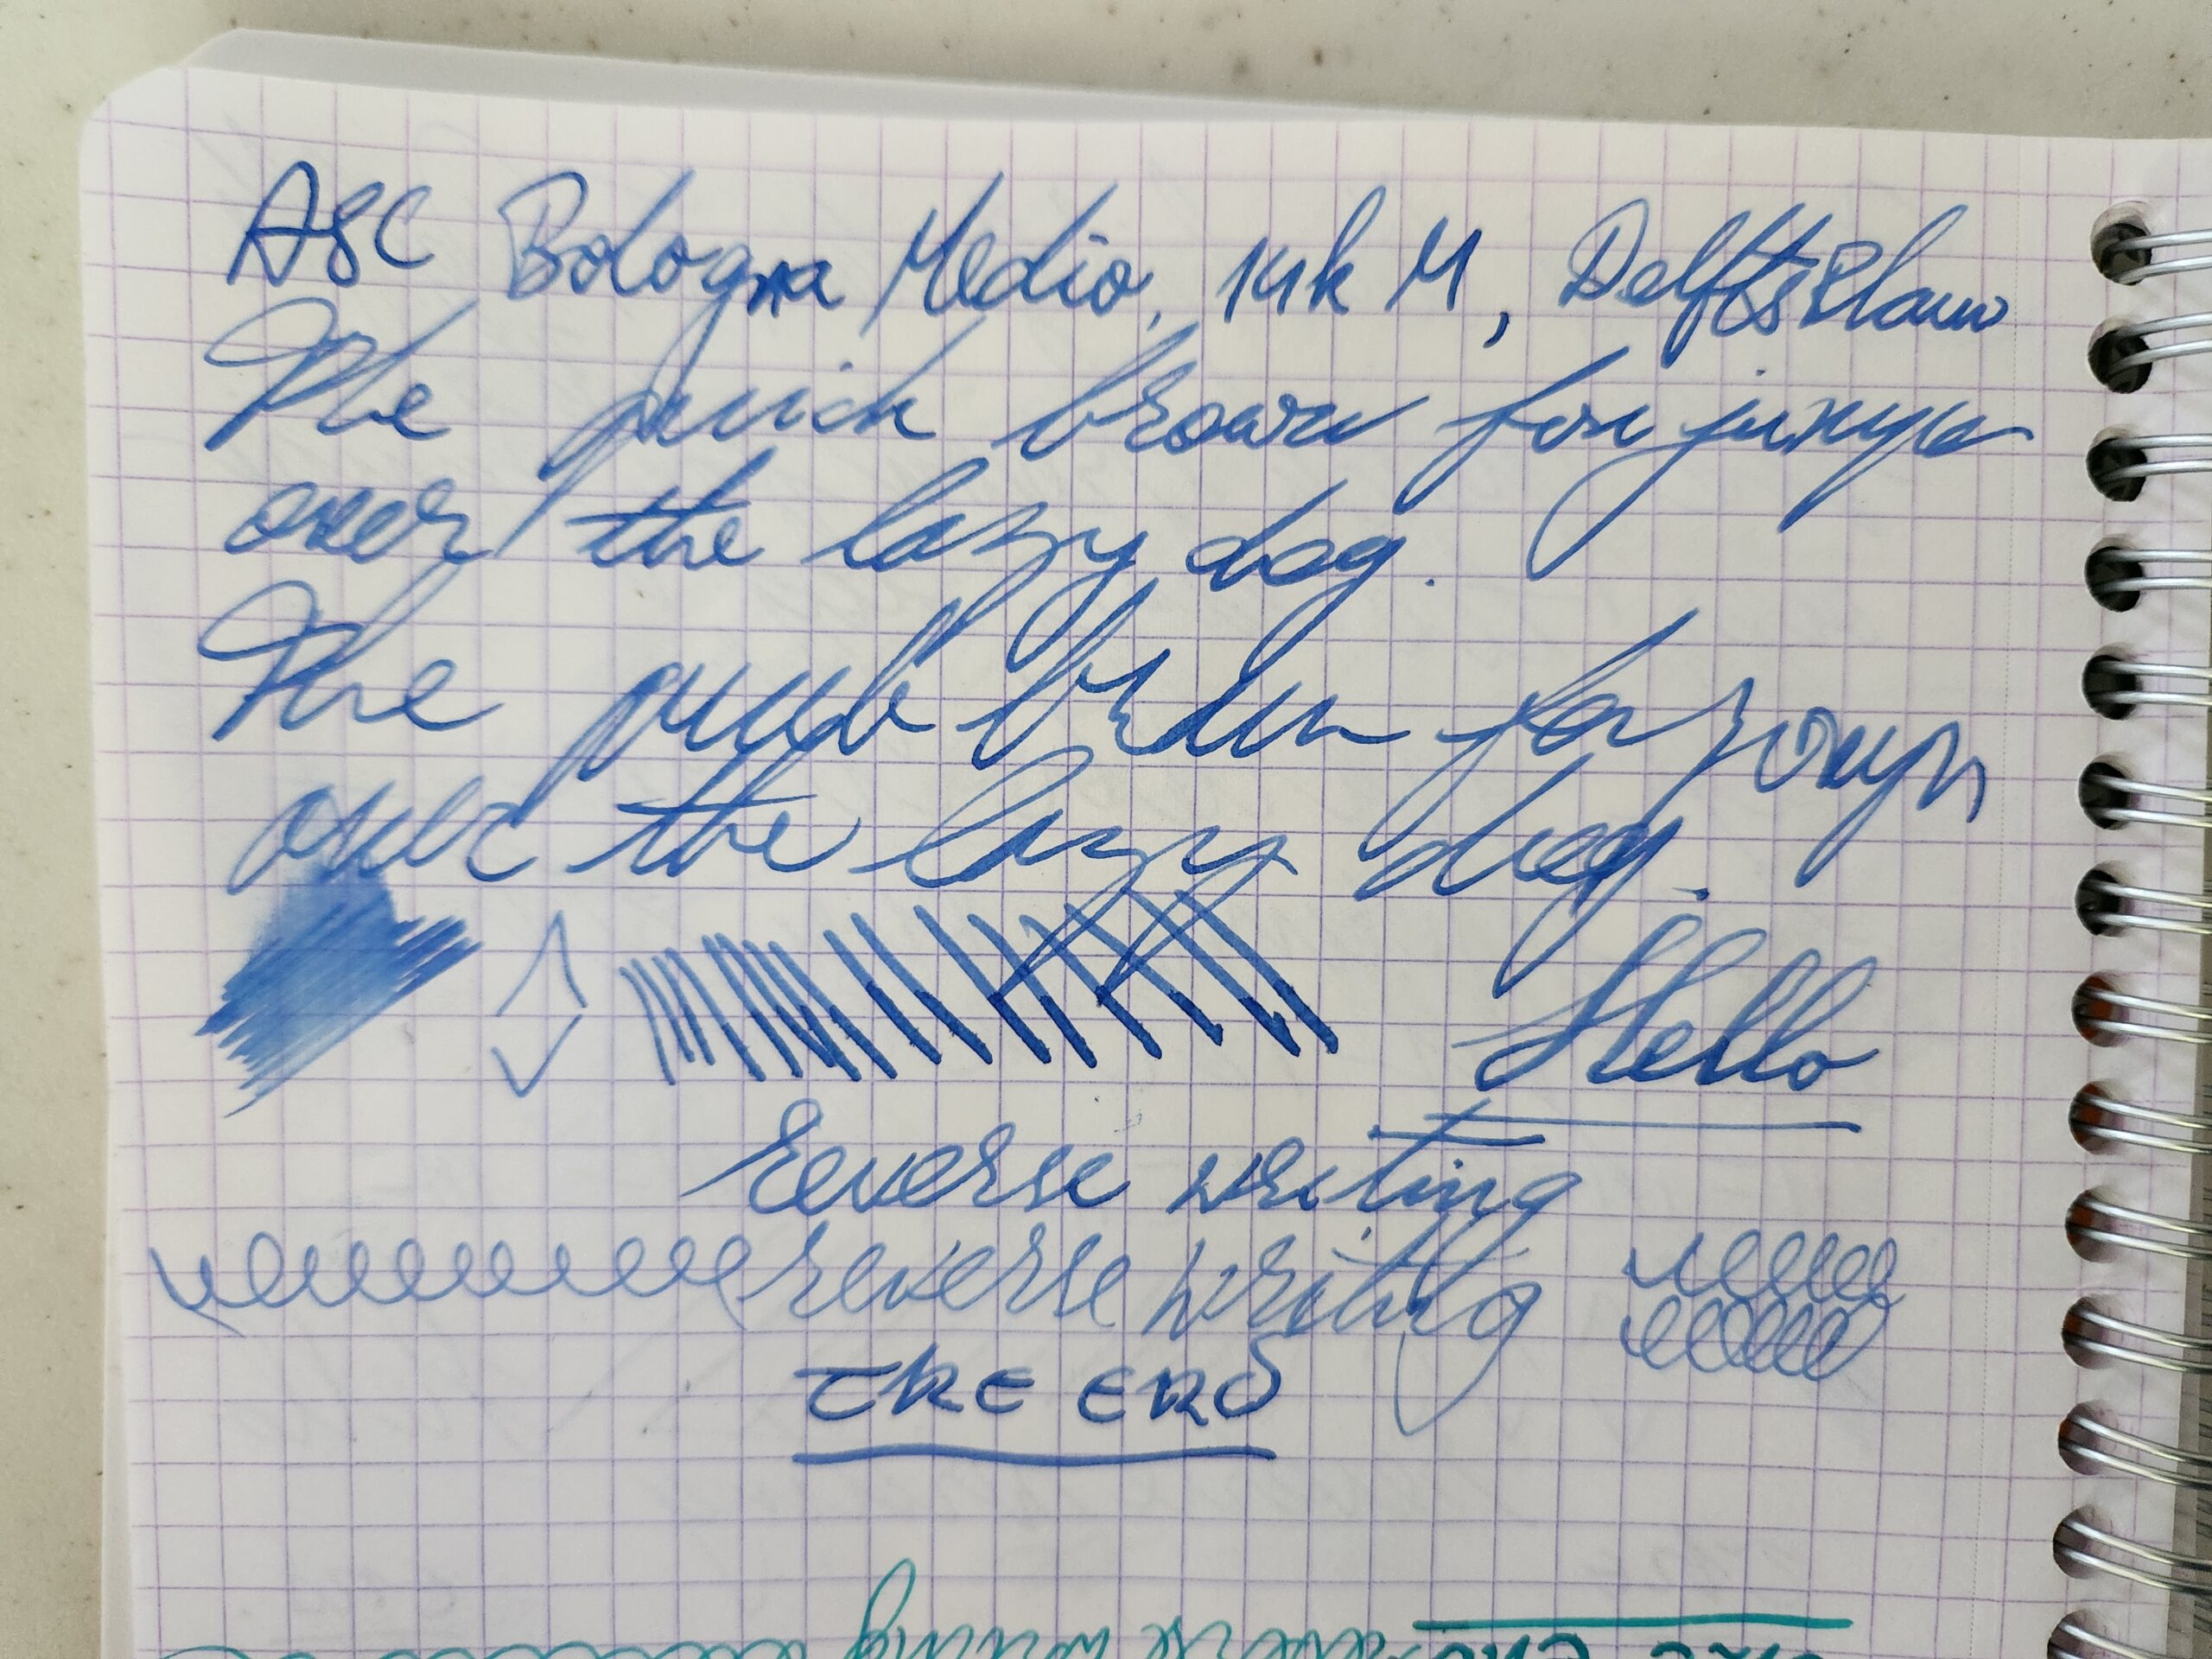 ASC Bologna Medio, 14k M, Delfts Blauw
The quick brown fox jumps
over the lazy dog.
The quick brown fox jumps
over the lazy dog.
Hello
Reverse writing
reverse writing
THE END
reverse writing
THE END